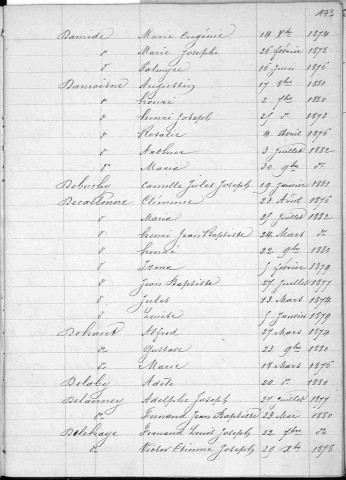 173
Marie Eugénie 14 1874
d° Marie Josephe 26 février 1875
d° Palmyre 16 Juin 1876
Augustin 17 8bre 1881
d° Louise 2 7bre 1880
d° Henri Joseph 25 d° 1873
d° Rosalie 4 Avril 1876
d° Arthur 3 Juillet 1882
d° Maria 30 9bre d°
Debuchy Camille Jules Joseph 19 Janvier 1881
Decottenne Etienne 23 Août 1876
d° Maria 25 Juillet 1882
d° Henri Jean Baptiste 24 Mars d°
d° 22 9bre 1880
d° Irma 5 février 1879
d° Jean Baptiste 27 Juillet 1877
d° Jules 13 Mars 1874
d° Louise 5 Janvier 1879
Alfred 27 Mars 1874
d° Gustave 23 9bre 1880
d° Marie 18 Mars 1876
Delaby Adèle 20 d° 1880
Delannoy Adolphe Joseph 27 Juillet 1877
d° Fernand Jean Baptiste 23 Mai 1880
Delehaye Fernand Louis Joseph 22 7bre d°
d° Victor Etienne Joseph 20 Xbre 1878